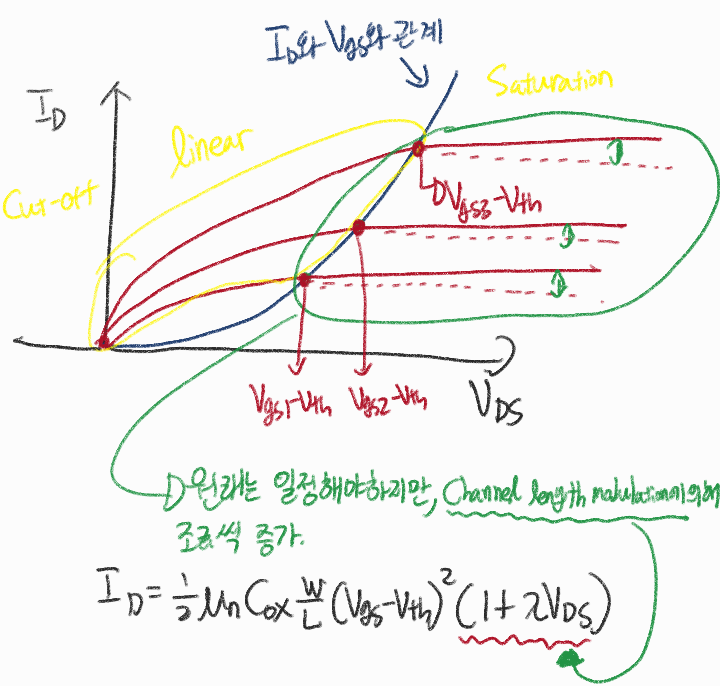 I_D와 V_gs와 관계
Saturation
I_D
linear
Cut-off
V_gs3-V_th
V_gs1-V_th
V_gs2-V_th
V_DS
원래는 일정해야하지만, Channel length modulation에의해
조금씩 증가.
I_D = 1/2 μ_n C_ox W/L (V_gs-V_th)^2 (1+λV_DS)